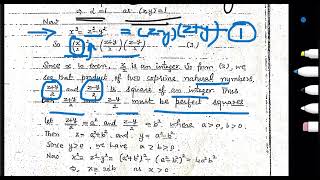 ⇒ d = 1 as (x,y)=1.
Now
→ x² = z²-y² = (z-y)(z+y) - ①
So (x/2)² = (z+y/2)(z-y/2) (3.)
Since x is even, x/2 is an integer. So from (3), we
see that product of two coprime natural numbers,
z+y/2 and z-y/2 is square of an integer. Thus
both z+y/2 and z-y/2 must be perfect squares
Let z+y/2 = a² and z-y/2 = b² where a>0, b>0.
Then z = a²+b² and y = a²-b².
Since y>0, we have a>b>0.
Now x² = z²-y² = (a²+b²)² - (a²-b²)² = 4a²b²
⇒ x = 2ab as x>0